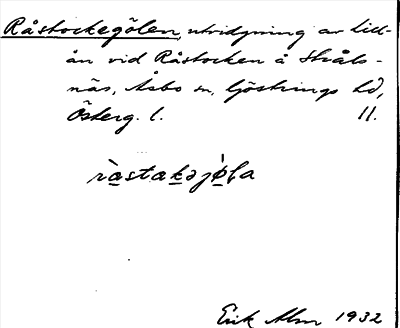 Råstockegölen, utvidgning av Lill-
ån vid Råstocken å Stråls-
näs, Åsbo sn, Göstrings hd,
Österg. l. 11.
ràstakəjø̀la
Erik Alm 1932